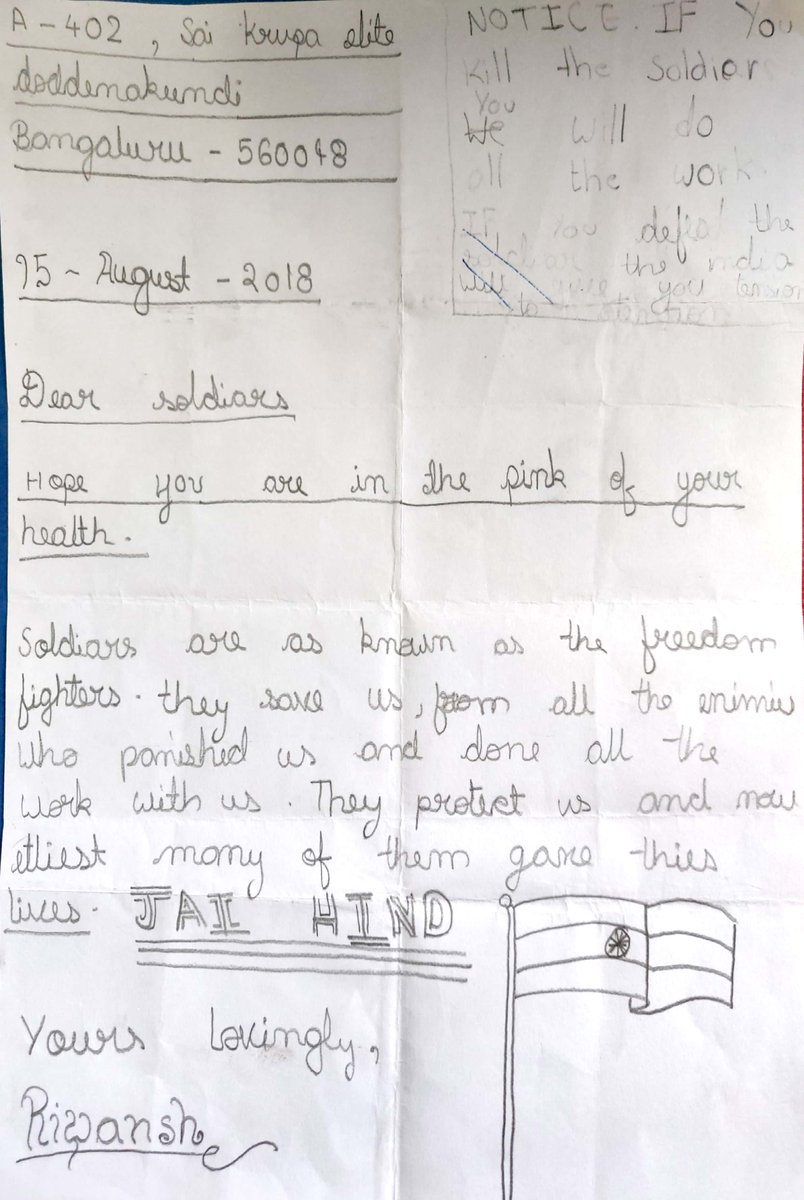 A-402, Sai Krupa elite
doddenakundi
Bangaluru - 560048
15 - August - 2018
NOTICE. IF You
Kill the Soldiars
You
He will do
all the work
IF You defeat the
the india
will give you tension
to
Dear soldiars
Hope you are in the pink of your
health.
Soldiars are as known as the freedom
fighters. they save us, from all the enimies
who panished us and done all the
work with us. They protect us and now
many of them gave thies
lives. JAI HIND
Yours lovingly,
Rivansh